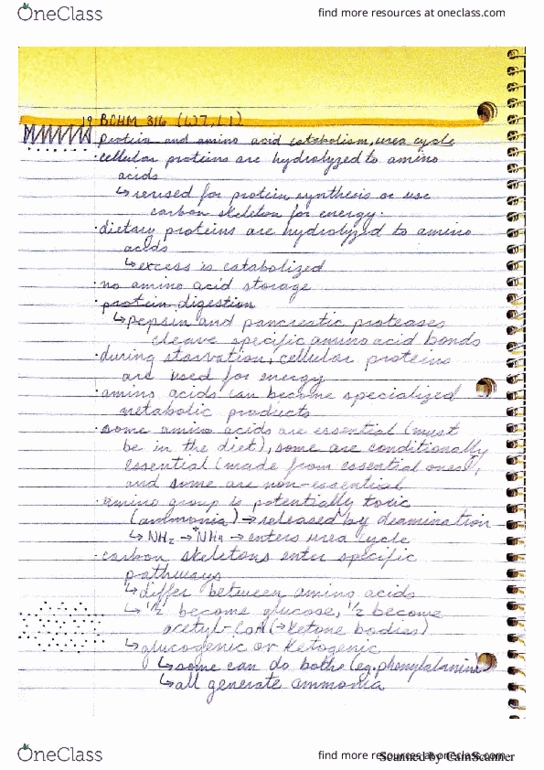 OneClass
find more resources at oneclass.com
19 BCHM 316 (L27, L1)
Protein and amino acid catabolism, urea cycle
·cellular proteins are hydrolyzed to amino
acids
↳reused for protein synthesis or use
carbon skeleton for energy.
·dietary proteins are hydrolyzed to amino
acids
↳excess is catabolized
·no amino acid storage
·protein digestion
↳pepsin and pancreatic proteases
cleave specific amino acid bonds
·during starvation, cellular proteins
are used for energy
·amino acids can become specialized
metabolic products
·some amino acids are essential (must
be in the diet), some are conditionally
essential (made from essential ones),
and some are non-essential
·amino group is potentially toxic
(ammonia)→released by deamination
↳NH₂→NH₄⁺→enters urea cycle
·carbon skeletons enter specific
pathways
↳differ between amino acids
↳1/2 become glucose, 1/2 become
acetyl-CoA (→ketone bodies)
↳glucogenic or ketogenic
↳some can do both (eg. phenylalanine
↳all generate ammonia
OneClass
find more resources at oneclass.com
Scanned by CamScanner